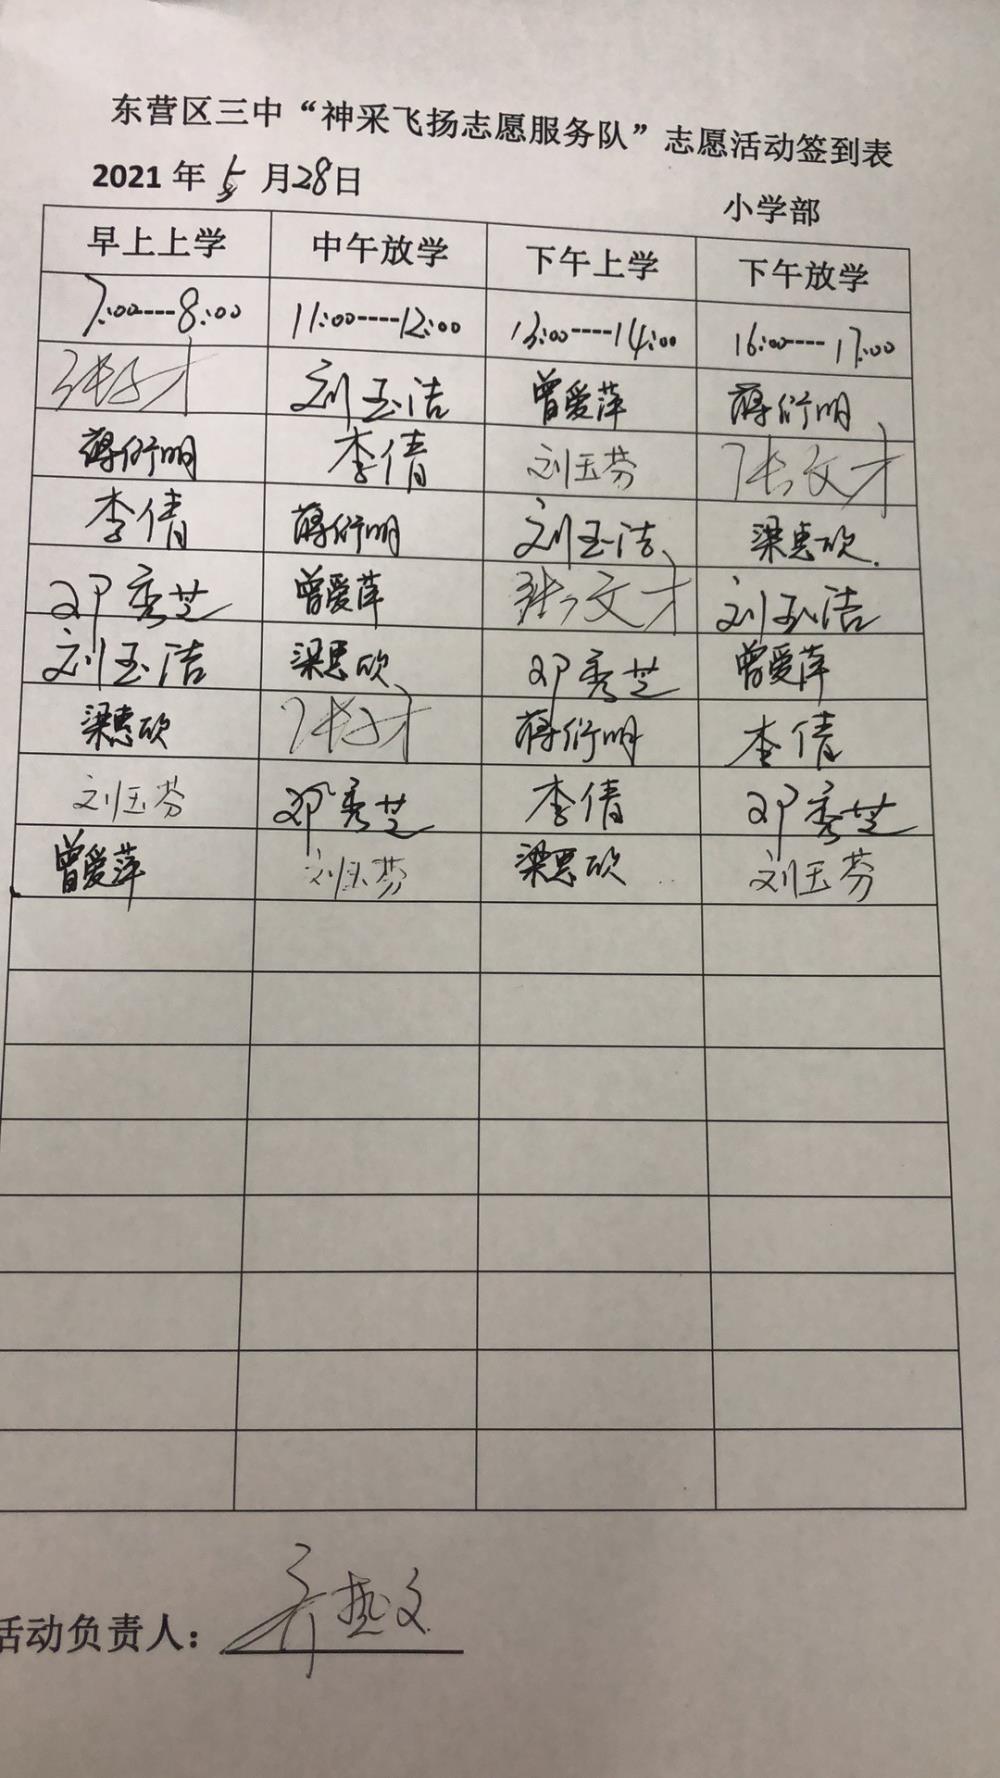 东营区三中“神采飞扬志愿服务队”志愿活动签到表
2021 年 5 月 28 日
小学部
早上上学 中午放学 下午上学 下午放学
7:00----8:00 11:00----12:00 13:00----14:00 16:00----17:00
张文才 刘玉洁 曾爱萍 蒋衍明
蒋衍明 李倩 刘玉芬 张文才
李倩 蒋衍明 刘玉洁 梁惠欣
邓秀芝 曾爱萍 张文才 刘玉洁
刘玉洁 梁惠欣 邓秀芝 曾爱萍
梁惠欣 张文才 蒋衍明 李倩
刘玉芬 邓秀芝 李倩 邓秀芝
曾爱萍 刘玉芬 梁惠欣 刘玉芬
活动负责人：